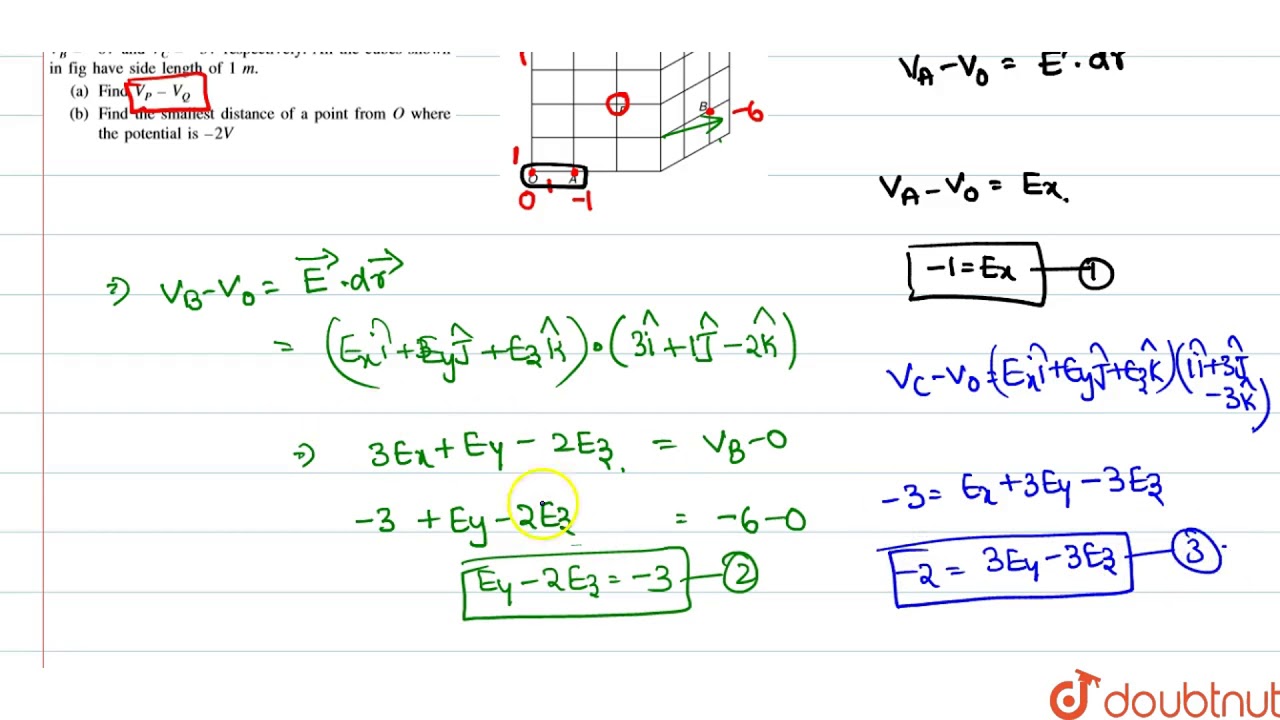 in fig have side length of 1 m.
(a) Find V_P − V_Q
(b) Find the smallest distance of a point from O where
the potential is −2V
1
B -6
1
O A
0 1 -1
V_A - V_0 = E . dr
V_A - V_0 = Ex.
-1 = Ex 1
⇒) V_B - V_0 = E . dr
= (Ex î + Ey ĵ + Ez k̂) . (3î + 1ĵ - 2k̂)
⇒) 3Ex + Ey - 2Ez = V_B - 0
-3 + Ey - 2Ez = -6 - 0
Ey - 2Ez = -3 2
V_C - V_0 = (Ex î + Ey ĵ + Ez k̂) (1î + 3ĵ
- 3k̂)
-3 = Ex + 3Ey - 3Ez
-2 = 3Ey - 3Ez 3
doubtnut